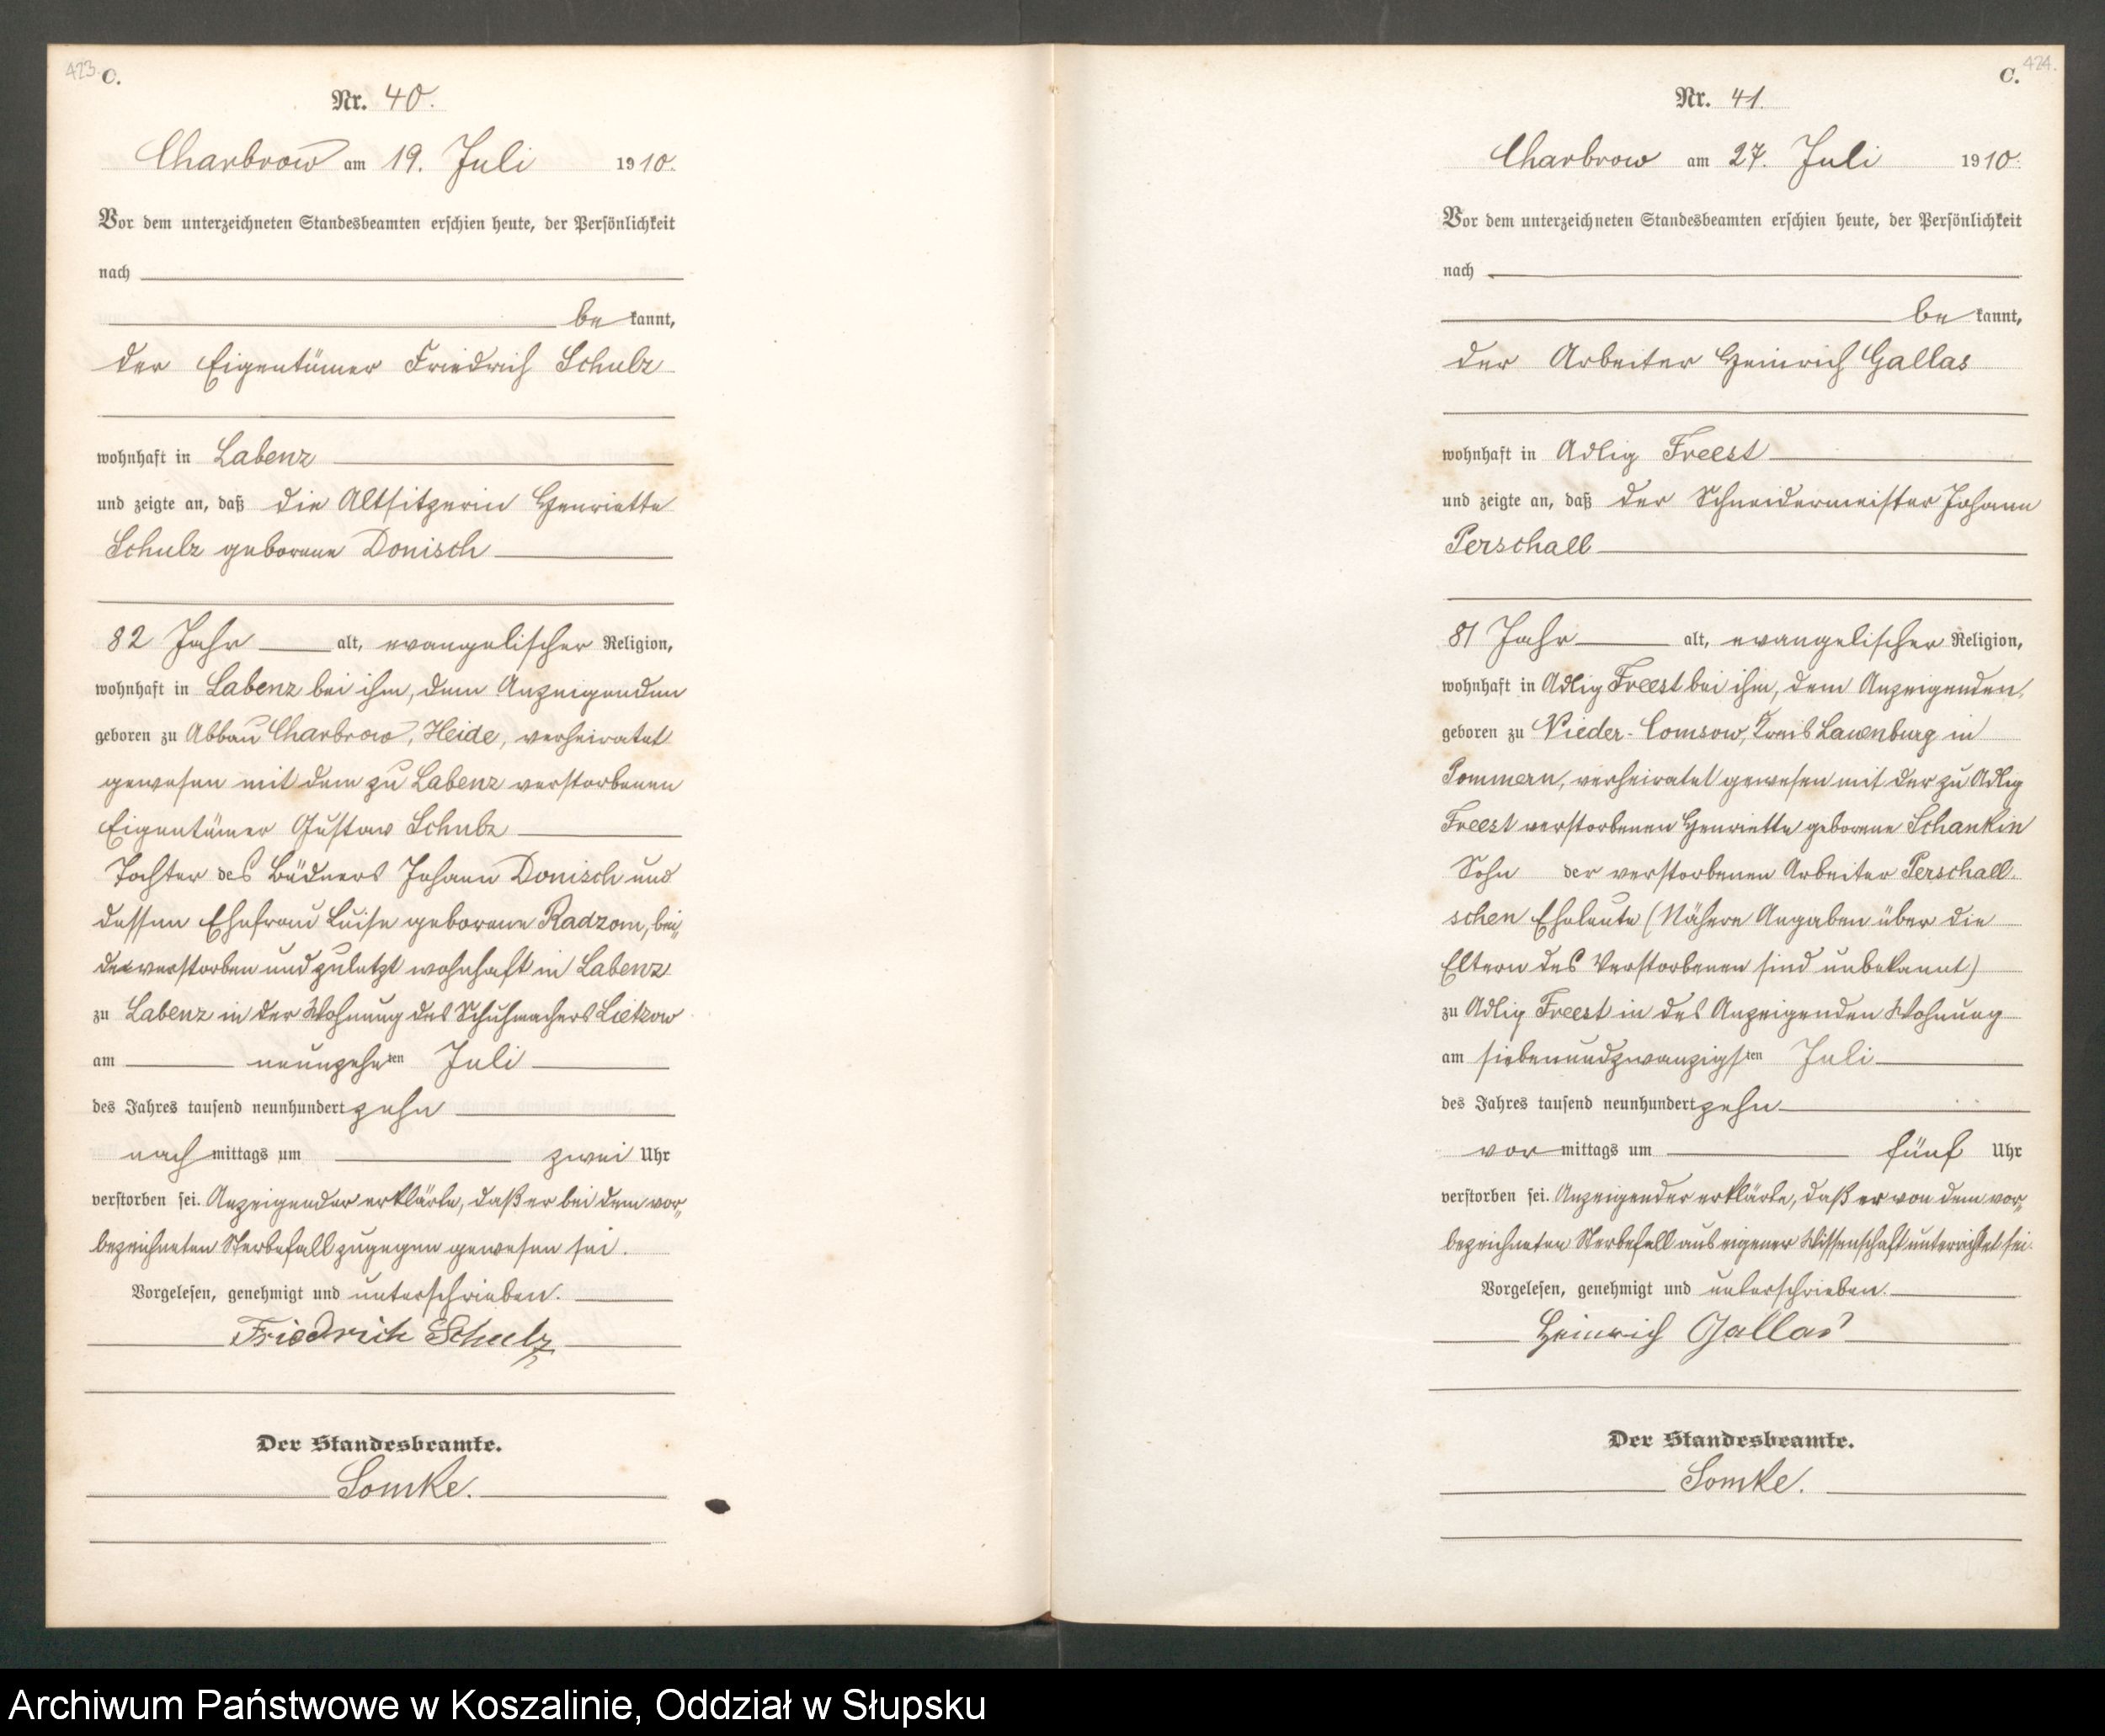 423.
C.
Nr. 40.
Charbrow am 19. Juli 1910.
Vor dem unterzeichneten Standesbeamten erschien heute, der Persönlichkeit
nach
be kannt,
der Eigentümer Friedrich Schulz
wohnhaft in Labenz
und zeigte an, daß die Altsitzerin Henriette
Schulz geborene Donisch
82 Jahr alt, evangelischer Religion,
wohnhaft in Labenz bei ihm, dem Anzeigenden
geboren zu Abbau Charbrow, Heide, verheiratet
gewesen mit dem zu Labenz verstorbenen
Eigentümer Gustav Schulz
Tochter des Büdners Johann Donisch und
dessen Ehefrau Luise geborene Radzom, bei„
de verstorben und zuletzt wohnhaft in Labenz
zu Labenz in der Wohnung des Schuhmachers Lietzow
am neunzehnten Juli
des Jahres tausend neunhundert zehn
nach mittags um zwei Uhr
verstorben sei. Anzeigender erklärte, daß er bei dem vor„
bezeichneten Sterbefall zugegen gewesen sei.
Vorgelesen, genehmigt und unterschrieben.
Friedrich Schulz
Der Standesbeamte.
Somke.
424.
C.
Nr. 41.
Charbrow am 27. Juli 1910.
Vor dem unterzeichneten Standesbeamten erschien heute, der Persönlichkeit
nach
be kannt,
der Arbeiter Heinrich Gallas
wohnhaft in Adlig Freest
und zeigte an, daß der Schneidermeister Johann
Perschall
81 Jahr alt, evangelischer Religion,
wohnhaft in Adlig Freest bei ihm, dem Anzeigenden,
geboren zu Nieder-Comsow, Kreis Lauenburg in
Pommern, verheiratet gewesen mit der zu Adlig
Freest verstorbenen Henriette geborene Schankin
Sohn der verstorbenen Arbeiter Perschall-
schen Eheleute (Nähere Angaben über die
Eltern des Verstorbenen sind unbekannt)
zu Adlig Freest in des Anzeigenden Wohnung
am siebenundzwanzigsten Juli
des Jahres tausend neunhundert zehn
vor mittags um fünf Uhr
verstorben sei. Anzeigender erklärte, daß er von dem vor„
bezeichneten Sterbefall aus eigener Wissenschaft unterrichtet sei.
Vorgelesen, genehmigt und unterschrieben.
Heinrich Gallas
Der Standesbeamte.
Somke.
Archiwum Państwowe w Koszalinie, Oddział w Słupsku